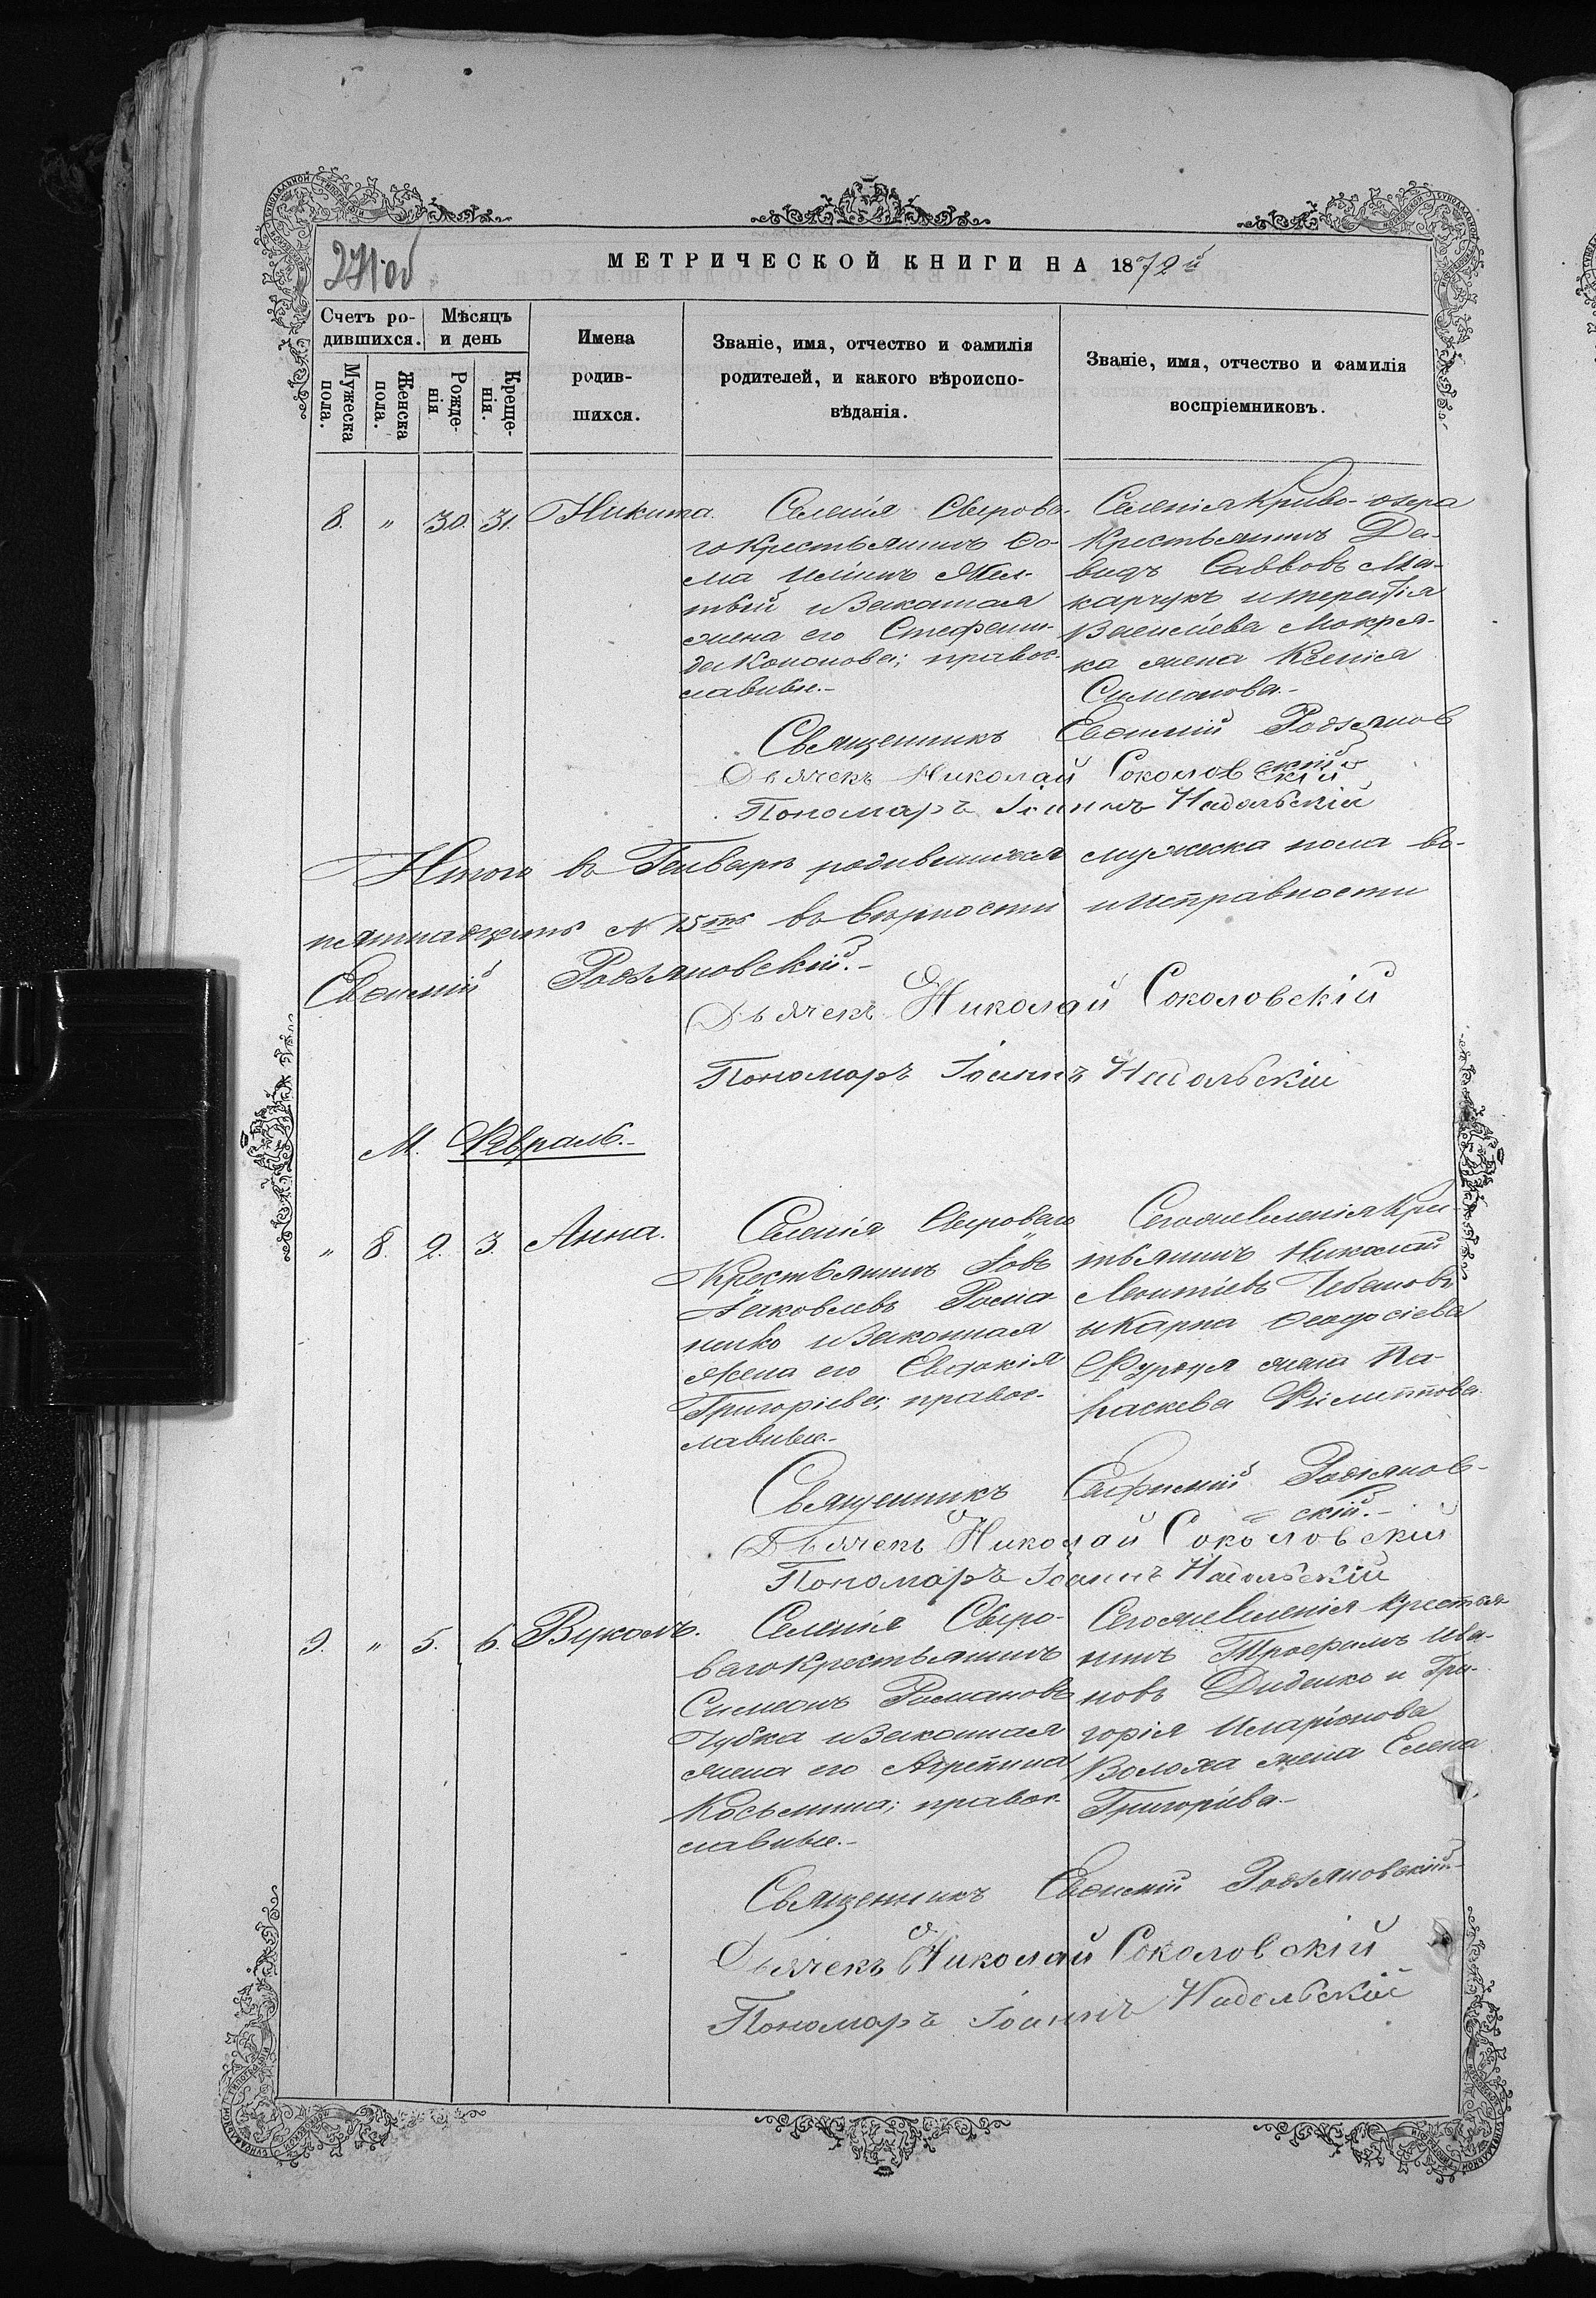 271 об
МЕТРИЧЕСКОЙ КНИГИ НА 1872й
Счетъ ро-
дившихся.
Мѣсяцъ
и день
Имена
родив-
шихся.
Званіе, имя, отчество и фамилія
родителей, и какого вѣроиспо-
вѣданія.
Званіе, имя, отчество и фамилія
воспріемниковъ.
Мужеска
пола.
Женска
пола.
Рожде-
нія
Креще-
нія.
8. " 30. 31. Никита.
Селенія Сырова-
го крестьянинъ Ѳо-
ма Ильинъ Жел-
тый и законная
жена его Стефани-
да Кононова; правос-
лавные.-
Селенія Криво-озера
крестьянинъ Да-
видъ Саввовъ Ма-
карчукъ и Терентія
Васильева Мокря-
ка жена Ксенія
Симеонова.-
Священникъ Евѳимій Родзянов
скій
Дьячекъ Николай Соколовскій
Пономарь Іоаннъ Надольскій
Итого въ Генварѣ родившихся мужеска пола во-
пятнадцать № 15ть въ вѣрности и исправности
Евѳимій Родзяновскій.-
Дьячекъ Николай Соколовскій
Пономарь Іоаннъ Надольскій
М. Февраль.-
" 8. 2. 3. Анна.
Селенія Сыроваго
крестьянинъ Іовъ
Іаковлевъ Рома
ненко и законная
жена его Евдокія
Григоріева; правос-
лавные.-
Сегожъ селенія кре-
стьянинъ Николай
Леонтіевъ Чебановъ
и Карпа Ѳеодосіева
Фурдуя жена Па-
раскева Филиппова.
Священникъ Евфимій Родзянов-
скій.-
Дьячекъ Николай Соколовскій
Пономарь Іоаннъ Надольскій
9. " 5. 6. Вуколъ.
Селенія Сыро-
ваго крестьянинъ
Симеонъ Романовъ
Чубка и законная
жена его Агрепина
Косьмина; правос-
лавные.-
Сегожъ селенія крестья-
нинъ Трофимъ Ива-
новъ Диденко и Гри-
горія Иларіонова
Волоха жена Елена
Григоріева.-
Священникъ Евѳимій Родзяновскій.-
Дьячекъ Николай Соколовскій
Пономарь Іоаннъ Надольскій